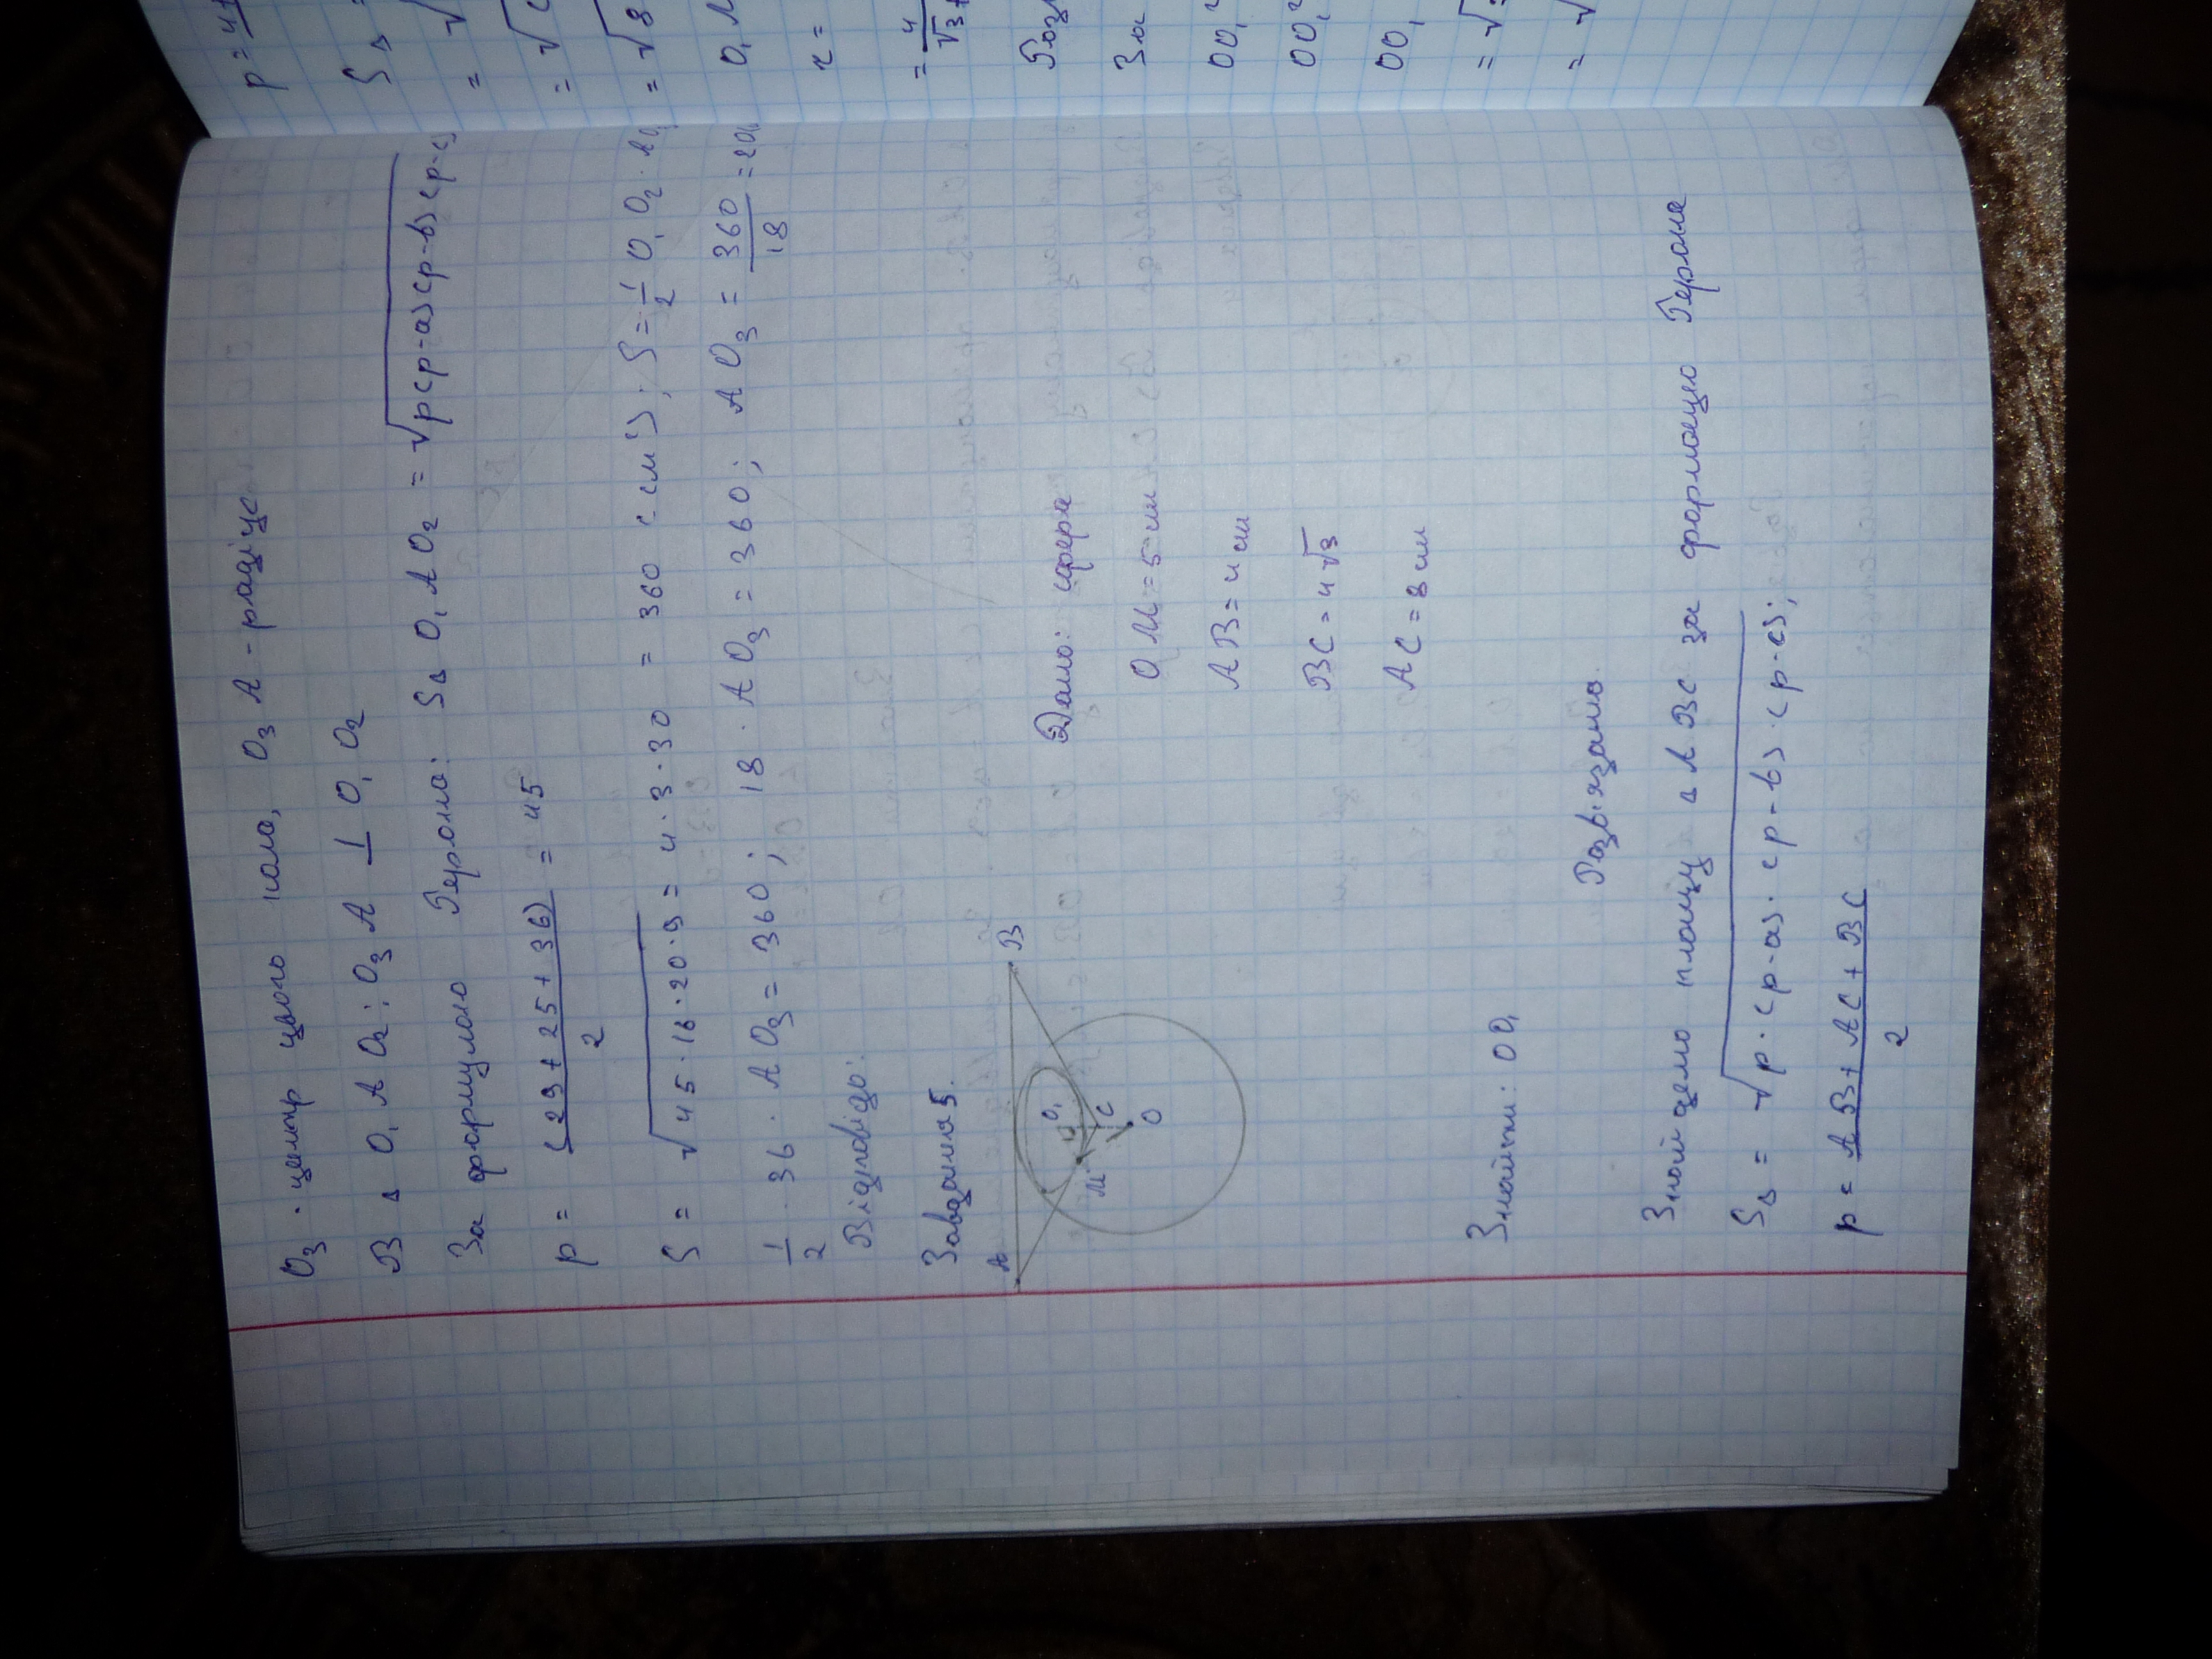 O₃ - центр цього кола, O₃ A - радіус
В Δ O₁ A O₂ : O₃ A ⊥ O₁ O₂
За формулою Герона: S Δ O₁ A O₂ = √p(p-a)(p-b)(p-c)
p = (29 + 25 + 36) / 2 = 45
S = √45·16·20·9 = 4·3·30 = 360 (см²); S = 1/2 O₁ O₂ ·
1/2 · 36 · A O₃ = 360; 18 · A O₃ = 360; A O₃ = 360/18 =
Відповідь:
Завдання 5.
A
B
M
O₁
C
O
Дано: сфера
OM = 5 см
AB = 4 см
BC = 4√3
AC = 8 см
Знайти: OO₁
Розв'язання.
Знайдемо площу Δ ABC за формулою Герона
SΔ = √p·(p-a)·(p-b)·(p-c);
p = AB + AC + BC / 2
p =
SΔ
= √
= √
= √8
O₁
r =
= 4/√3+
Розг
Зна
OO₁²
OO₁²
OO₁
= √
= √